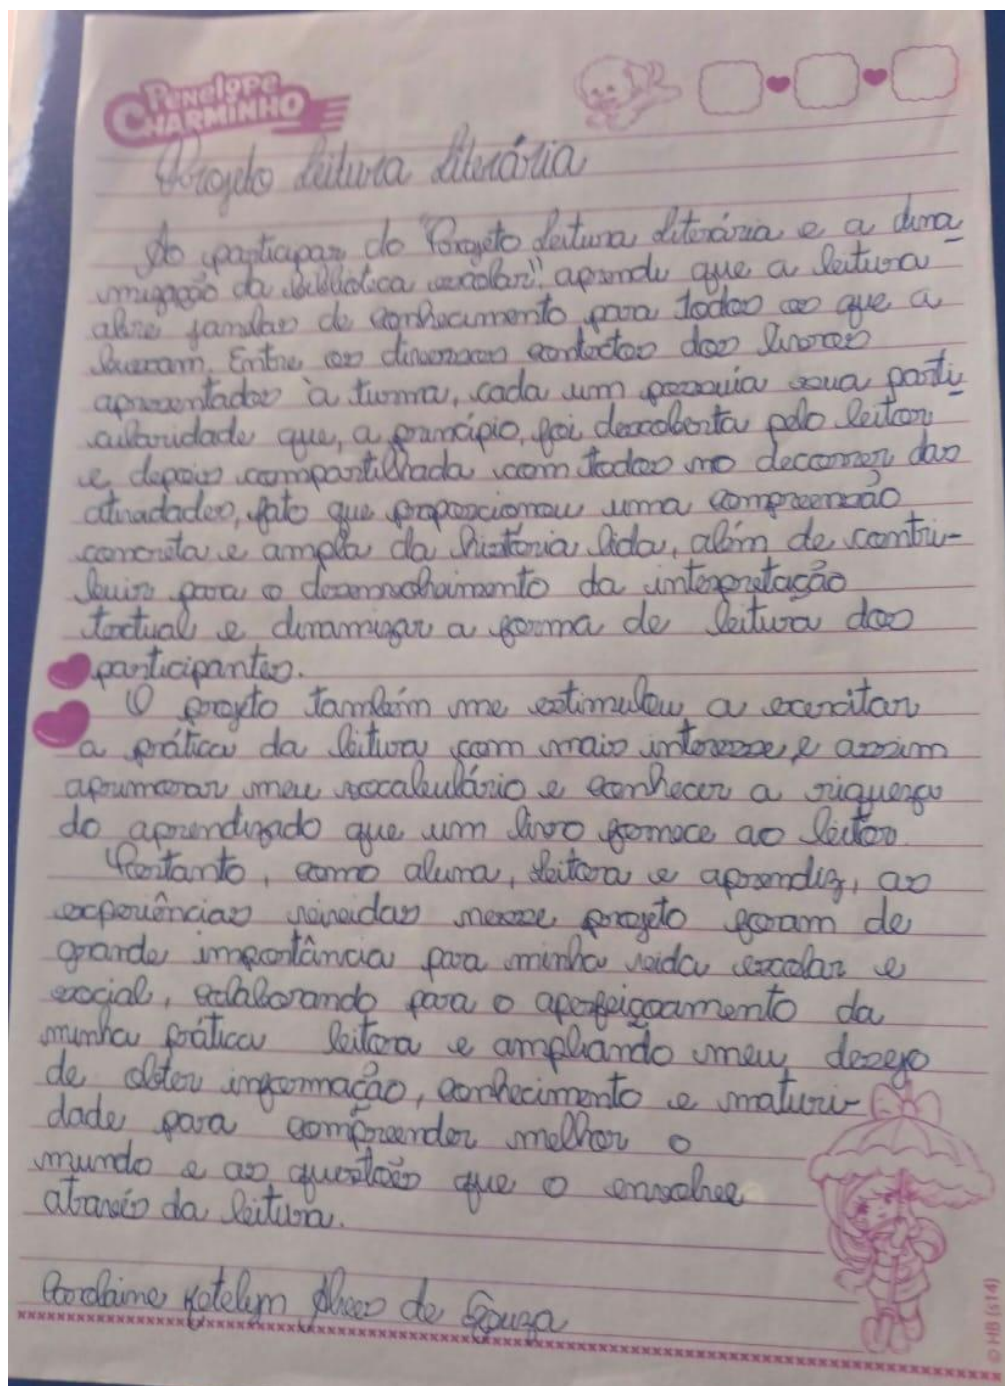 Penelope
CHARMINHO
Projeto Leitura Literária
Ao participar do "Projeto Leitura Literária e a dina
mização da biblioteca escolar" aprendi que a leitura
abre janelas de conhecimento para todos os que a
buscam. Entre os diversos contextos dos livros
apresentados à turma, cada um possuía sua parti
cularidade que, a princípio, foi descoberta pelo leitor
e depois compartilhada com todos no decorrer das
atividades, fato que proporcionou uma compreensão
concreta e ampla da história lida, além de contri-
buir para o desenvolvimento da interpretação
textual e dinamizar a forma de leitura dos
participantes.
O projeto também me estimulou a exercitar
a prática da leitura com mais interesse, e assim
aprimorar meu vocabulário e conhecer a riqueza
do aprendizado que um livro fornece ao leitor.
Portanto, como aluna, leitora e aprendiz, as
experiências vividas nesse projeto foram de
grande importância para minha vida escolar e
social, colaborando para o aperfeiçoamento da
minha prática leitora e ampliando meu desejo
de obter informação, conhecimento e maturi-
dade para compreender melhor o
mundo e as questões que o envolve
através da leitura.
de Souza
© HB (s14)